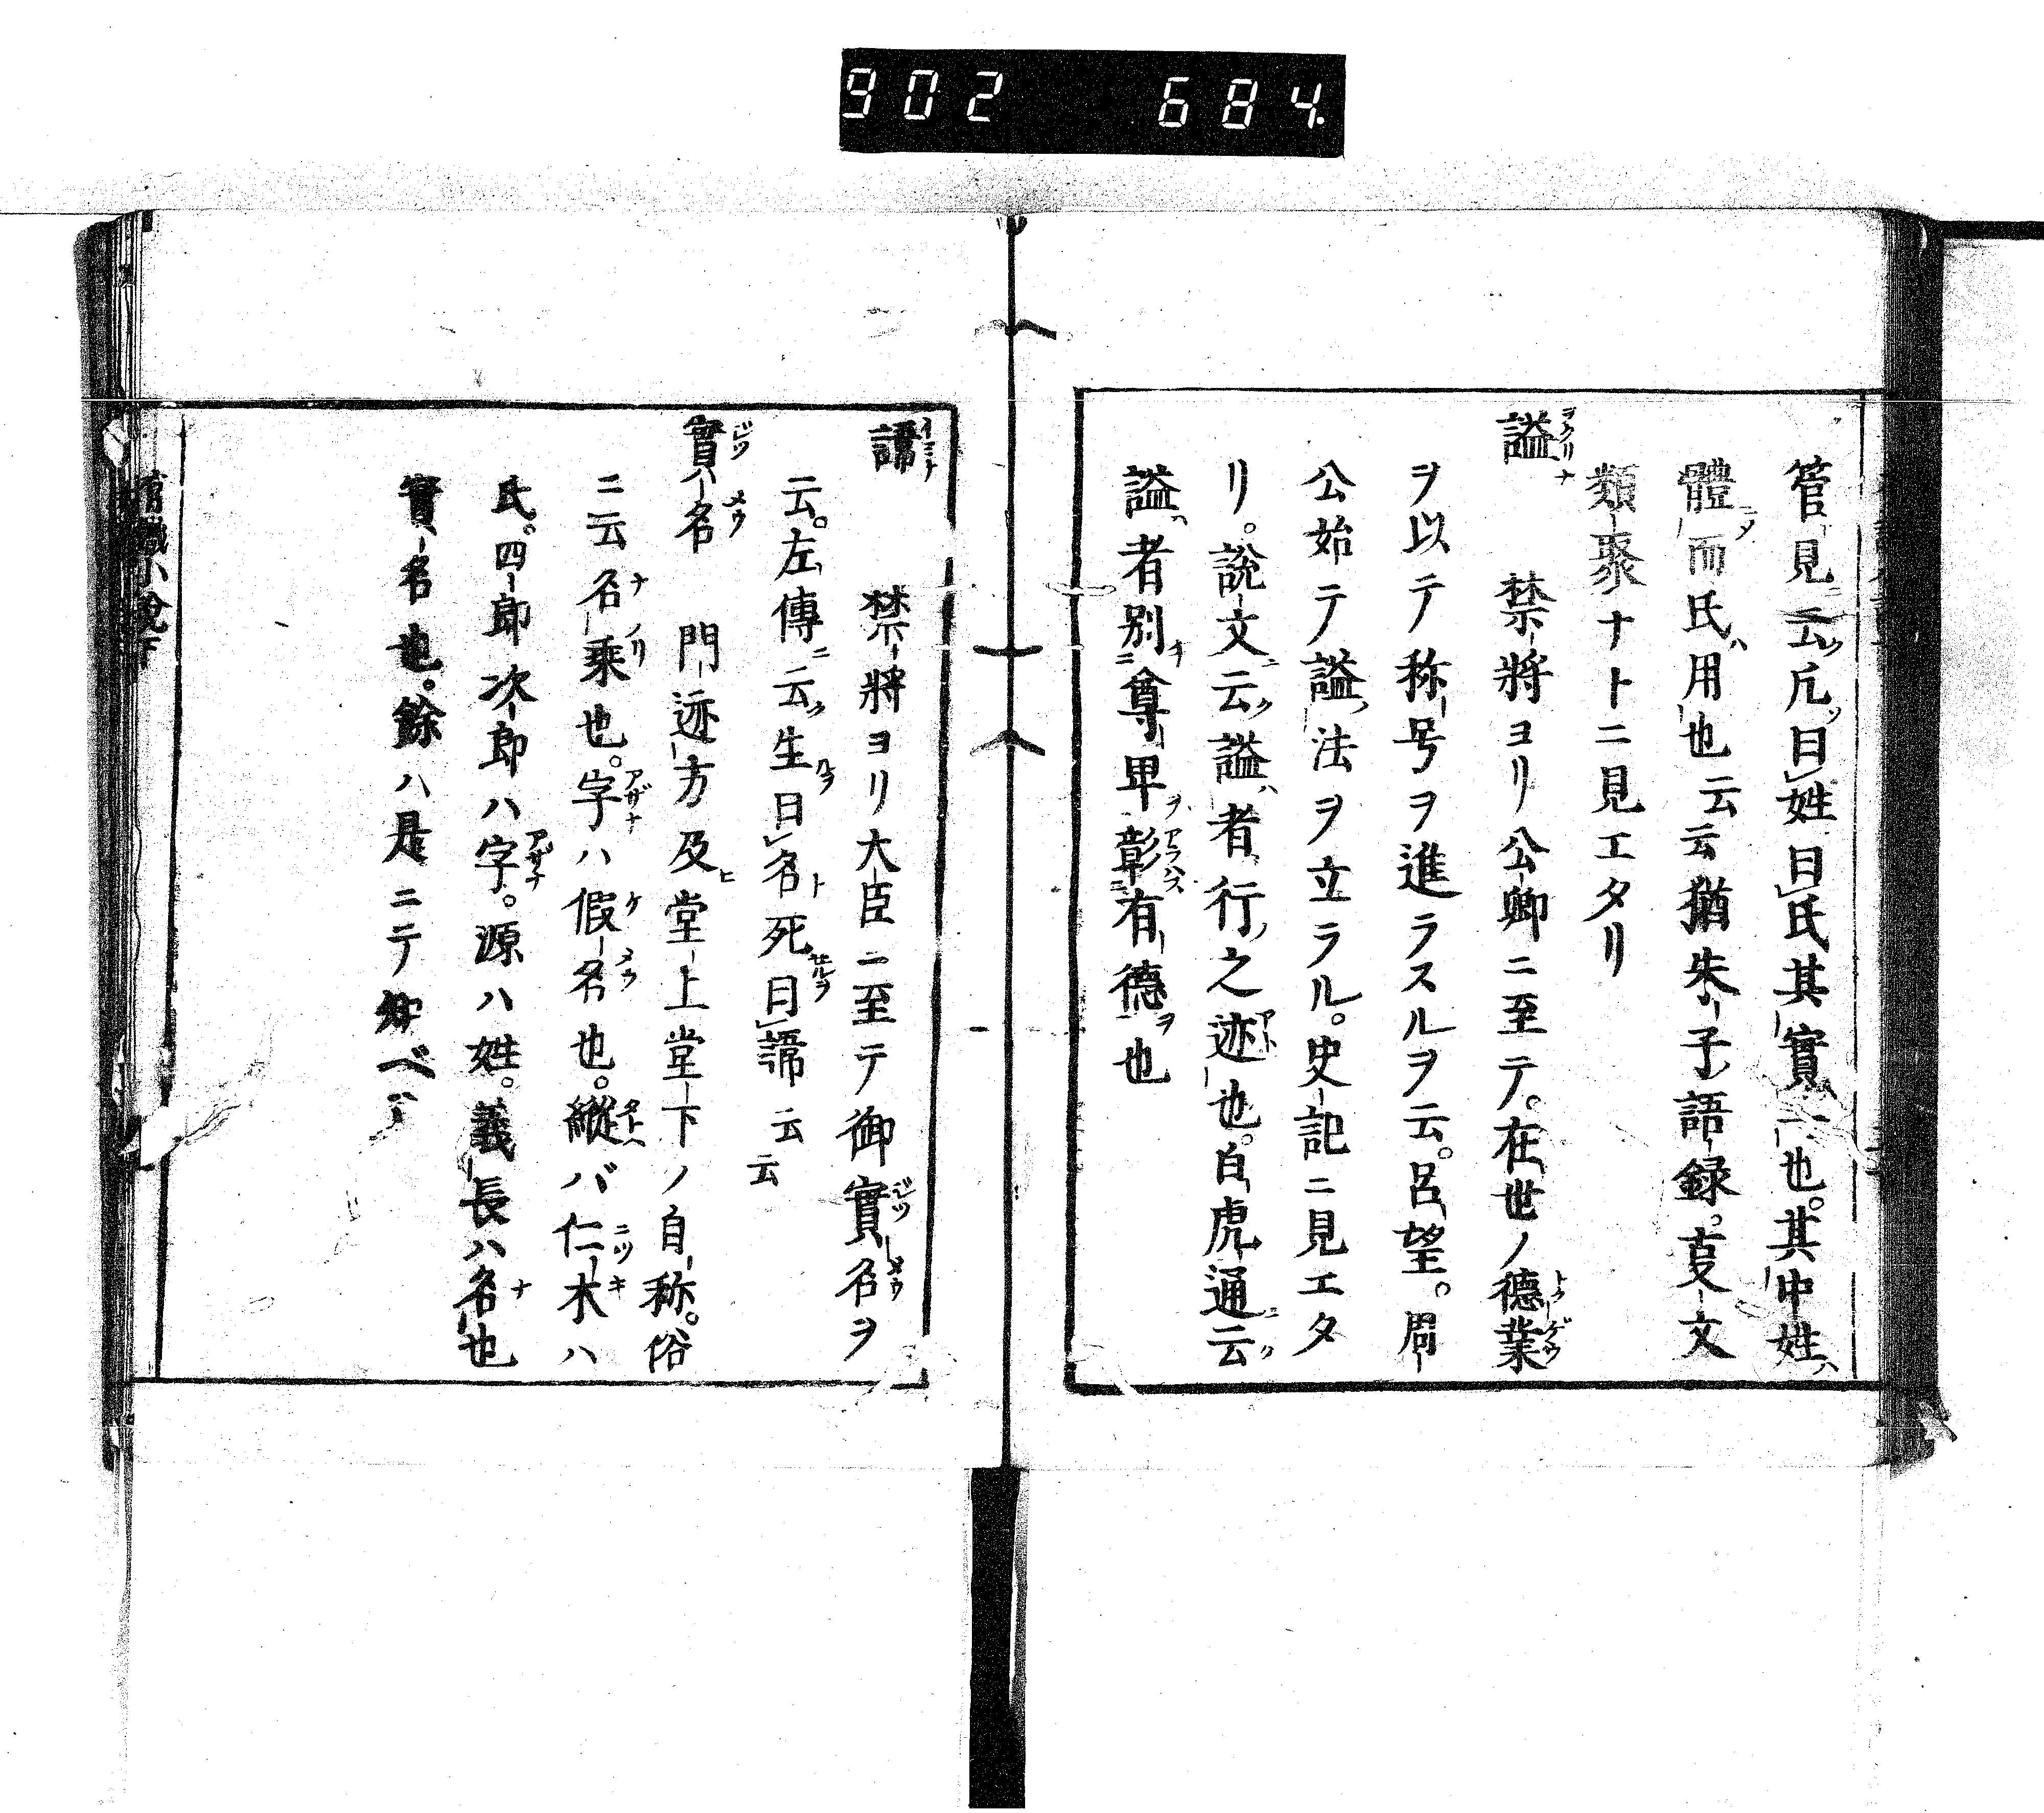 902 684.
管見云凢曰姓曰氏其實一也。其中姓ハ
體ニノ而氏ハ用也云云猶朱子語録。事文
類聚ナトニ見エタリ
謚 禁將ヨリ公卿ニ至テ。在世ノ德業
ヲ以テ称号ヲ進ラスルヲ云。呂望。周
公始テ謚法ヲ立ラル。史記ニ見エタ
リ。說文云謚者行之迹也。白虎通云
謚者別尊卑彰有德也
諱 禁將ヨリ大臣ニ至テ御實名ヲ
云。左傳云生曰名死曰諱云云
實名 門迹方及堂上堂下ノ自称。俗
ニ云名乘也。字ハ假名也。縱バ仁木ハ
氏。四郎次郎ハ字。源ハ姓。義長ハ名也
實名也。餘ハ是ニテ知ベシ
有職小說下